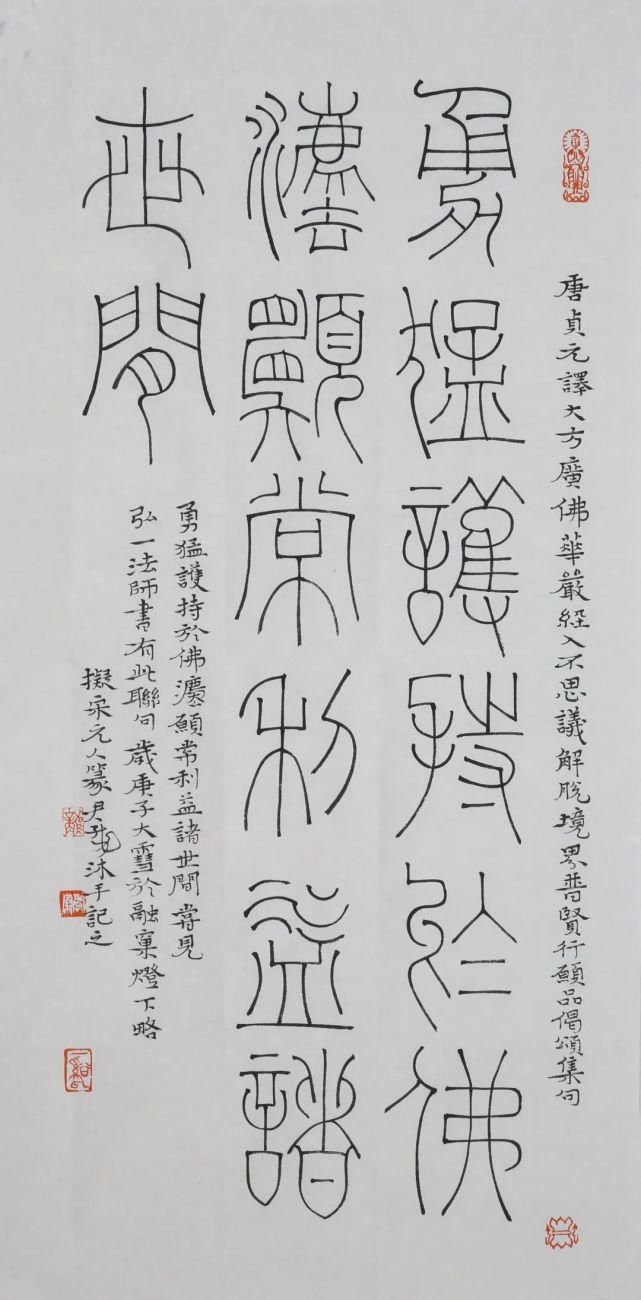 唐貞元譯大方廣佛華嚴經入不思議解脫境界普賢行願品偈頌集句
勇猛護持於佛
灋願常利益諸
世間
勇猛護持於佛灋願常利益諸世間 嘗見
弘一法師書有此聯句 歲庚子大雪於融窠燈下略
擬宋元人篆尹沐手記之